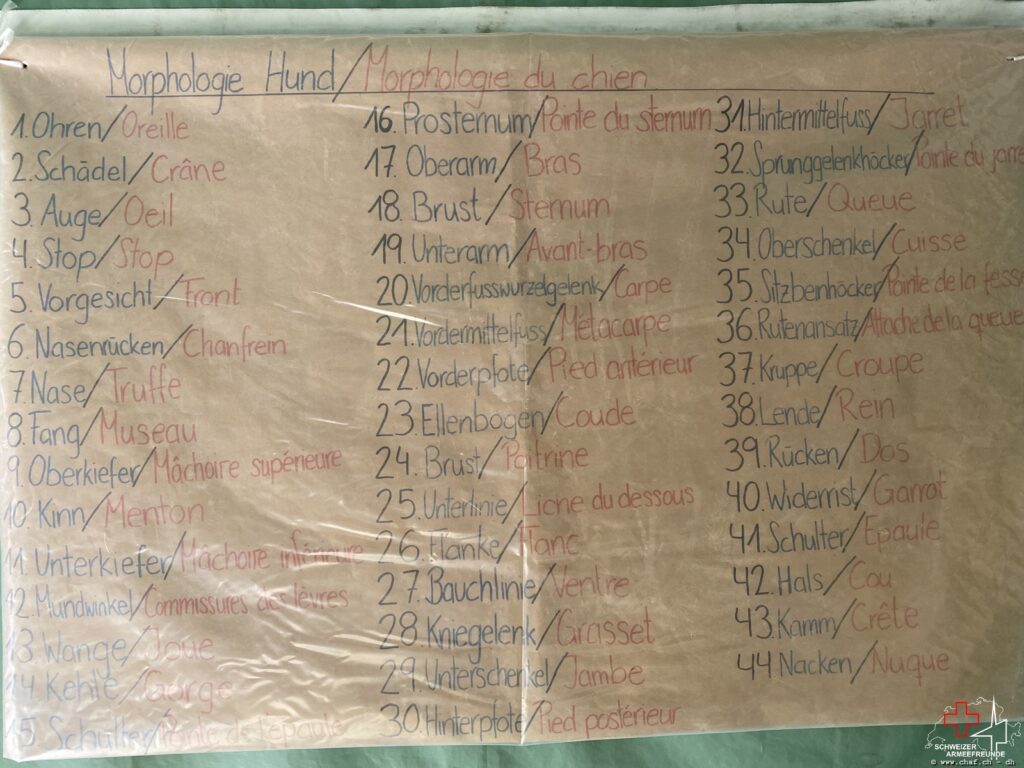 Morphologie Hund/Morphologie du chien
1. Ohren/Oreille
2. Schädel/Crâne
3. Auge/Oeil
4. Stop/Stop
5. Vorgesicht/Front
6. Nasenrücken/Chanfrein
7. Nase/Truffe
8. Fang/Museau
9. Oberkiefer/Mâchoire supérieure
10. Kinn/Menton
11. Unterkiefer/Mâchoire inférieure
12. Mundwinkel/Commissures des lèvres
13 Wange/Joue
14. Kehle/Gorge
15. Schulter/Pointe de l'épaule
16. Prosternum/Pointe du sternum
17. Oberarm/Bras
18. Brust/Sternum
19. Unterarm/Avant-bras
20. Vorderfusswurzelgelenk/Carpe
21. Vordermittelfuss/Métacarpe
22. Vorderpfote/Pied antérieur
23. Ellenbogen/Coude
24. Brust/Poitrine
25. Unterlinie/Ligne du dessous
26. Flanke/Flanc
27. Bauchlinie/Ventre
28. Kniegelenk/Grasset
29. Unterschenkel/Jambe
30. Hinterpfote/Pied postérieur
31. Hintermittelfuss/Jarret
32. Sprunggelenkhöcker/Pointe du jarre
33. Rute/Queue
34. Oberschenkel/Cuisse
35. Sitzbeinhöcker/Pointe de la fesse
36. Rutenansatz/Attache de la queue
37. Kruppe/Croupe
38. Lende/Rein
39. Rücken/Dos
40. Widerrist/Garrot
41. Schulter/Epaule
42. Hals/Cou
43. Kamm/Crête
44 Nacken/Nuque
SCHWEIZER
ARMEEFREUNDE
© www.chaf.ch - dh